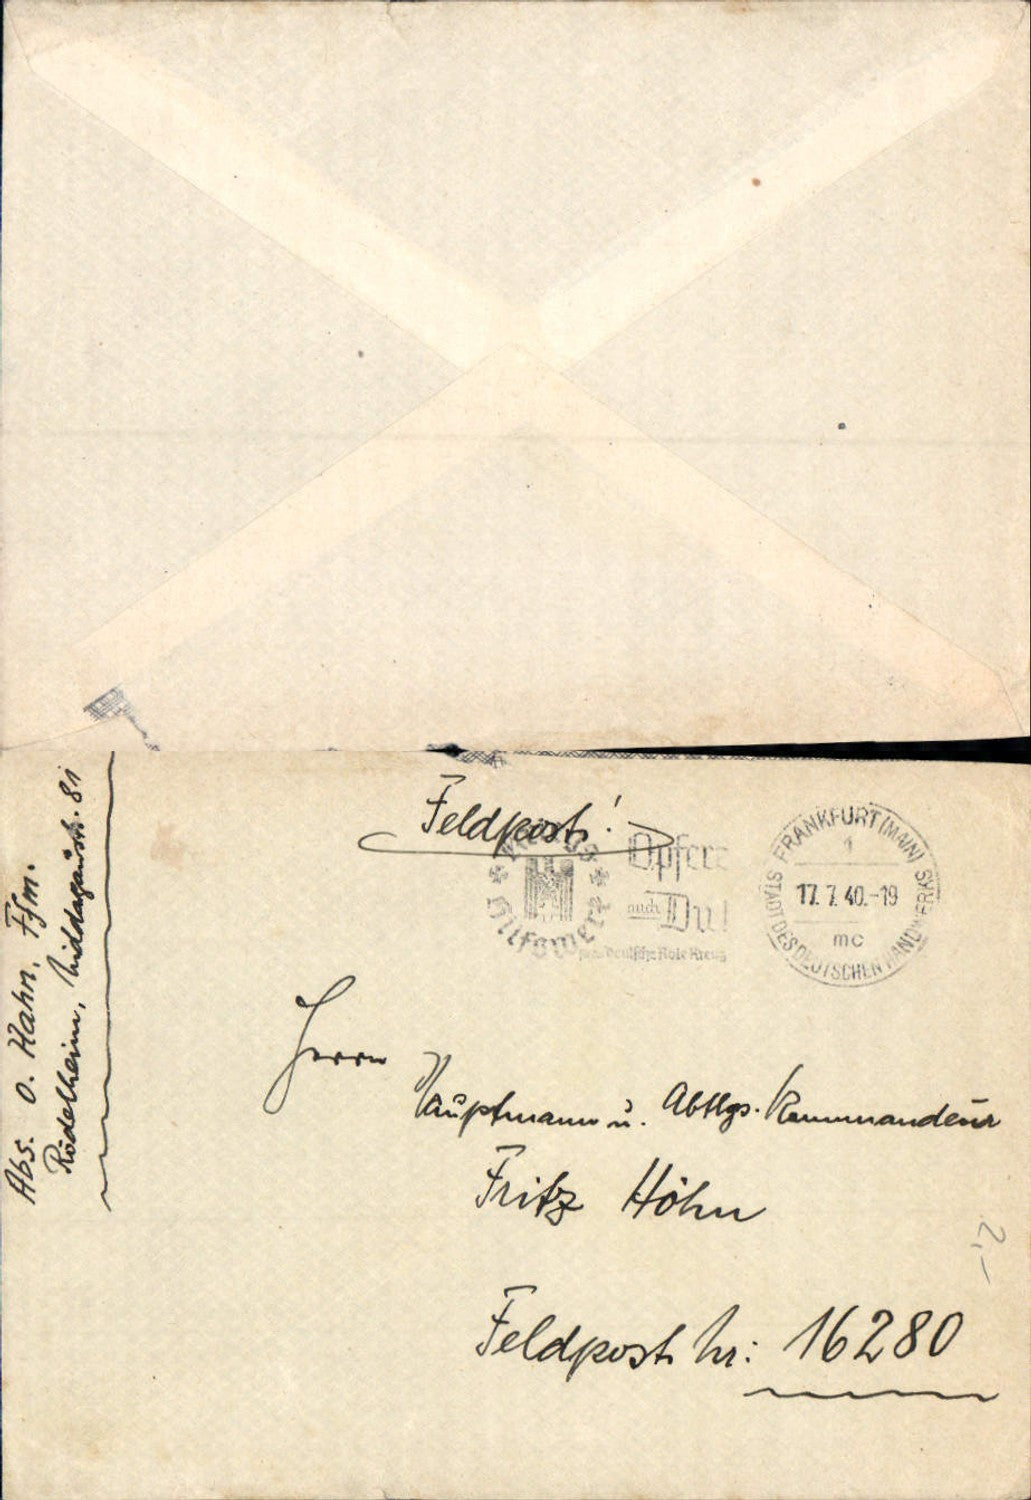 Feldpost!
Kriegs
Hilfswerk
Opfere
auch Du!
Deutsche Rote Kreuz
FRANKFURT (MAIN)
1
17.7.40.-19
mc
STADT DES DEUTSCHEN HANDWERKS
Abs. O. Hahn, Ffm.
Rödelheim, Niddagaustr. 81
Herrn
Hauptmann u. Abtlgs. Kommandeur
Fritz Höhn
Feldpost Nr: 16280
2,-